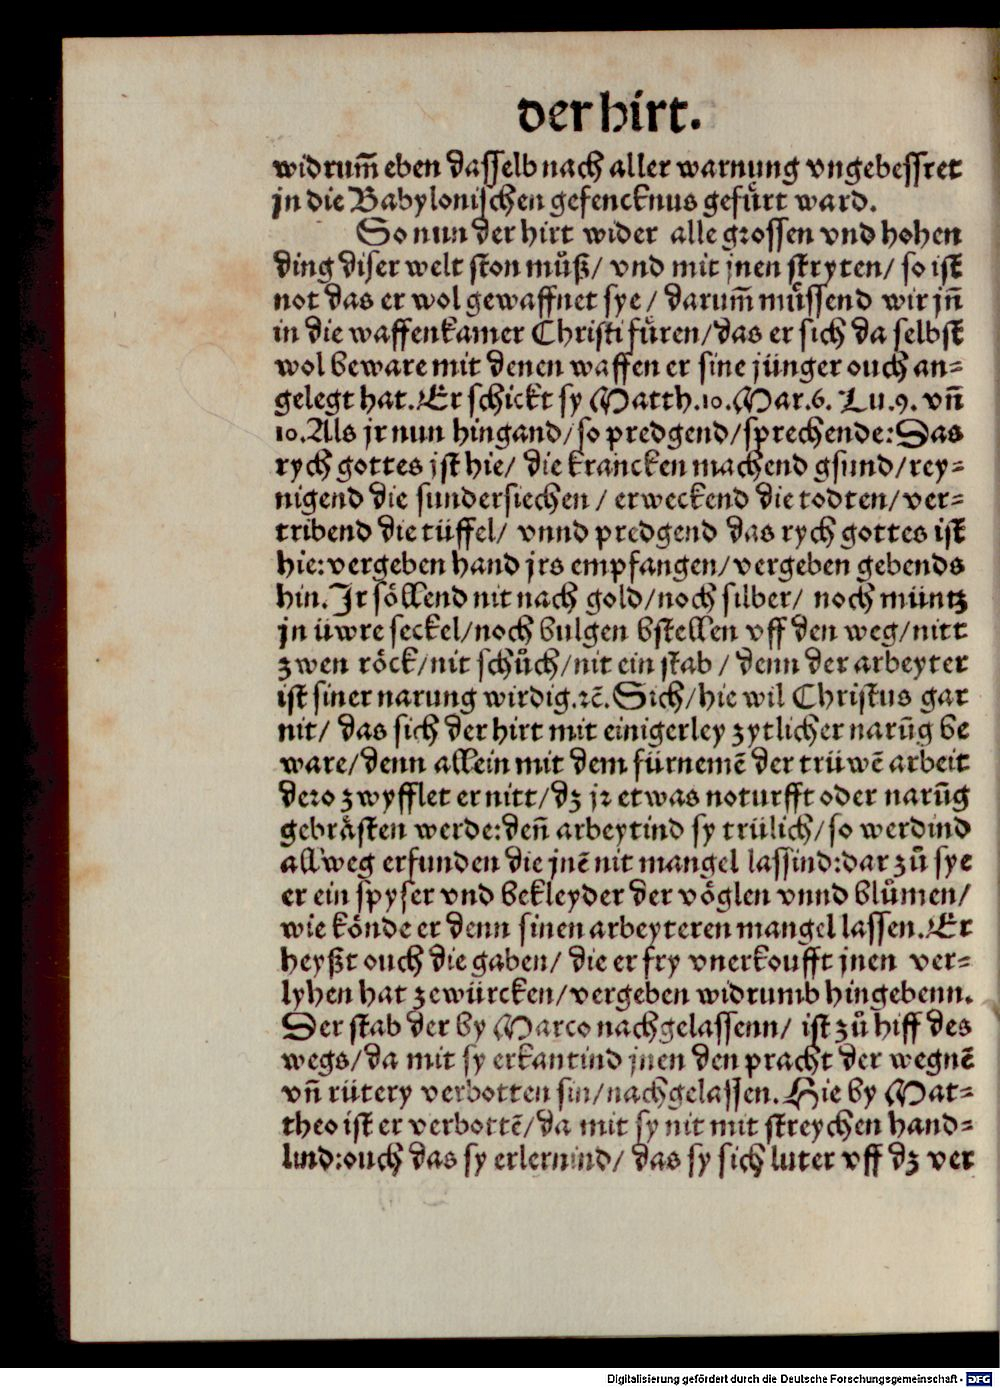 der hirt.
widrum̃ eben dasselb nach aller warnung vngebessret
jn die Babylonischen gefencknus gefuͤrt ward.
So nun der hirt wider alle grossen vnd hohen
ding diser welt ston muͦß/ vnd mit jnen stryten/ so ist
not das er wol gewaffnet sye / darum̃ muͤssend wir jn̄
in die waffenkamer Christi fuͤren/das er sich da selbst
wol beware mit denen waffen er sine jünger ouch an⸗
gelegt hat. Er schickt sy Matth.10.Mar.6. Lu.9. vn̄
10.Als jr nun hingand/so predgend/sprechende:Das
rych gottes jst hie/ die krancken machend gsund/rey⸗
nigend die sundersiechen / erweckend die todten/ver⸗
tribend die tüffel/ vnnd predgend das rych gottes ist
hie:vergeben hand jrs empfangen/vergeben gebends
hin. Jr söllend nit nach gold/noch silber/ noch müntz
jn üwre seckel/noch bulgen bstellen vff den weg/nitt
zwen röck/nit schuͦch/nit ein stab / denn der arbeyter
ist siner narung wirdig.ꝛc̄. Sich/hie wil Christus gar
nit/ das sich der hirt mit einigerley zytlicher narūg be
ware/denn allein mit dem fürnemē der trüwē arbeit
dero zwyfflet er nitt/dz jr etwas noturfft oder narūg
gebraͤsten werde:den̄ arbeytind sy trülich/so werdind
allweg erfunden die jnē nit mangel lassind:dar zuͦ sye
er ein spyser vnd bekleyder der vöglen vnnd bluͦmen/
wie könde er denn sinen arbeyteren mangel lassen. Er
heyßt ouch die gaben/ die er fry vnerkoufft jnen ver⸗
lyhen hat zewürcken/vergeben widrumb hingebenn.
Der stab der by Marco nachgelassenn/ ist zuͦ hiff des
wegs/da mit sy erkantind jnen den pracht der wegnē
vn̄ rütery verbotten sin/nachgelassen. Hie by Mat⸗
theo ist er verbottē/da mit sy nit mit streychen hand⸗
lind:ouch das sy erlernind/ das sy sich luter vff dz ver
Digitalisierung gefördert durch die Deutsche Forschungsgemeinschaft - DFG